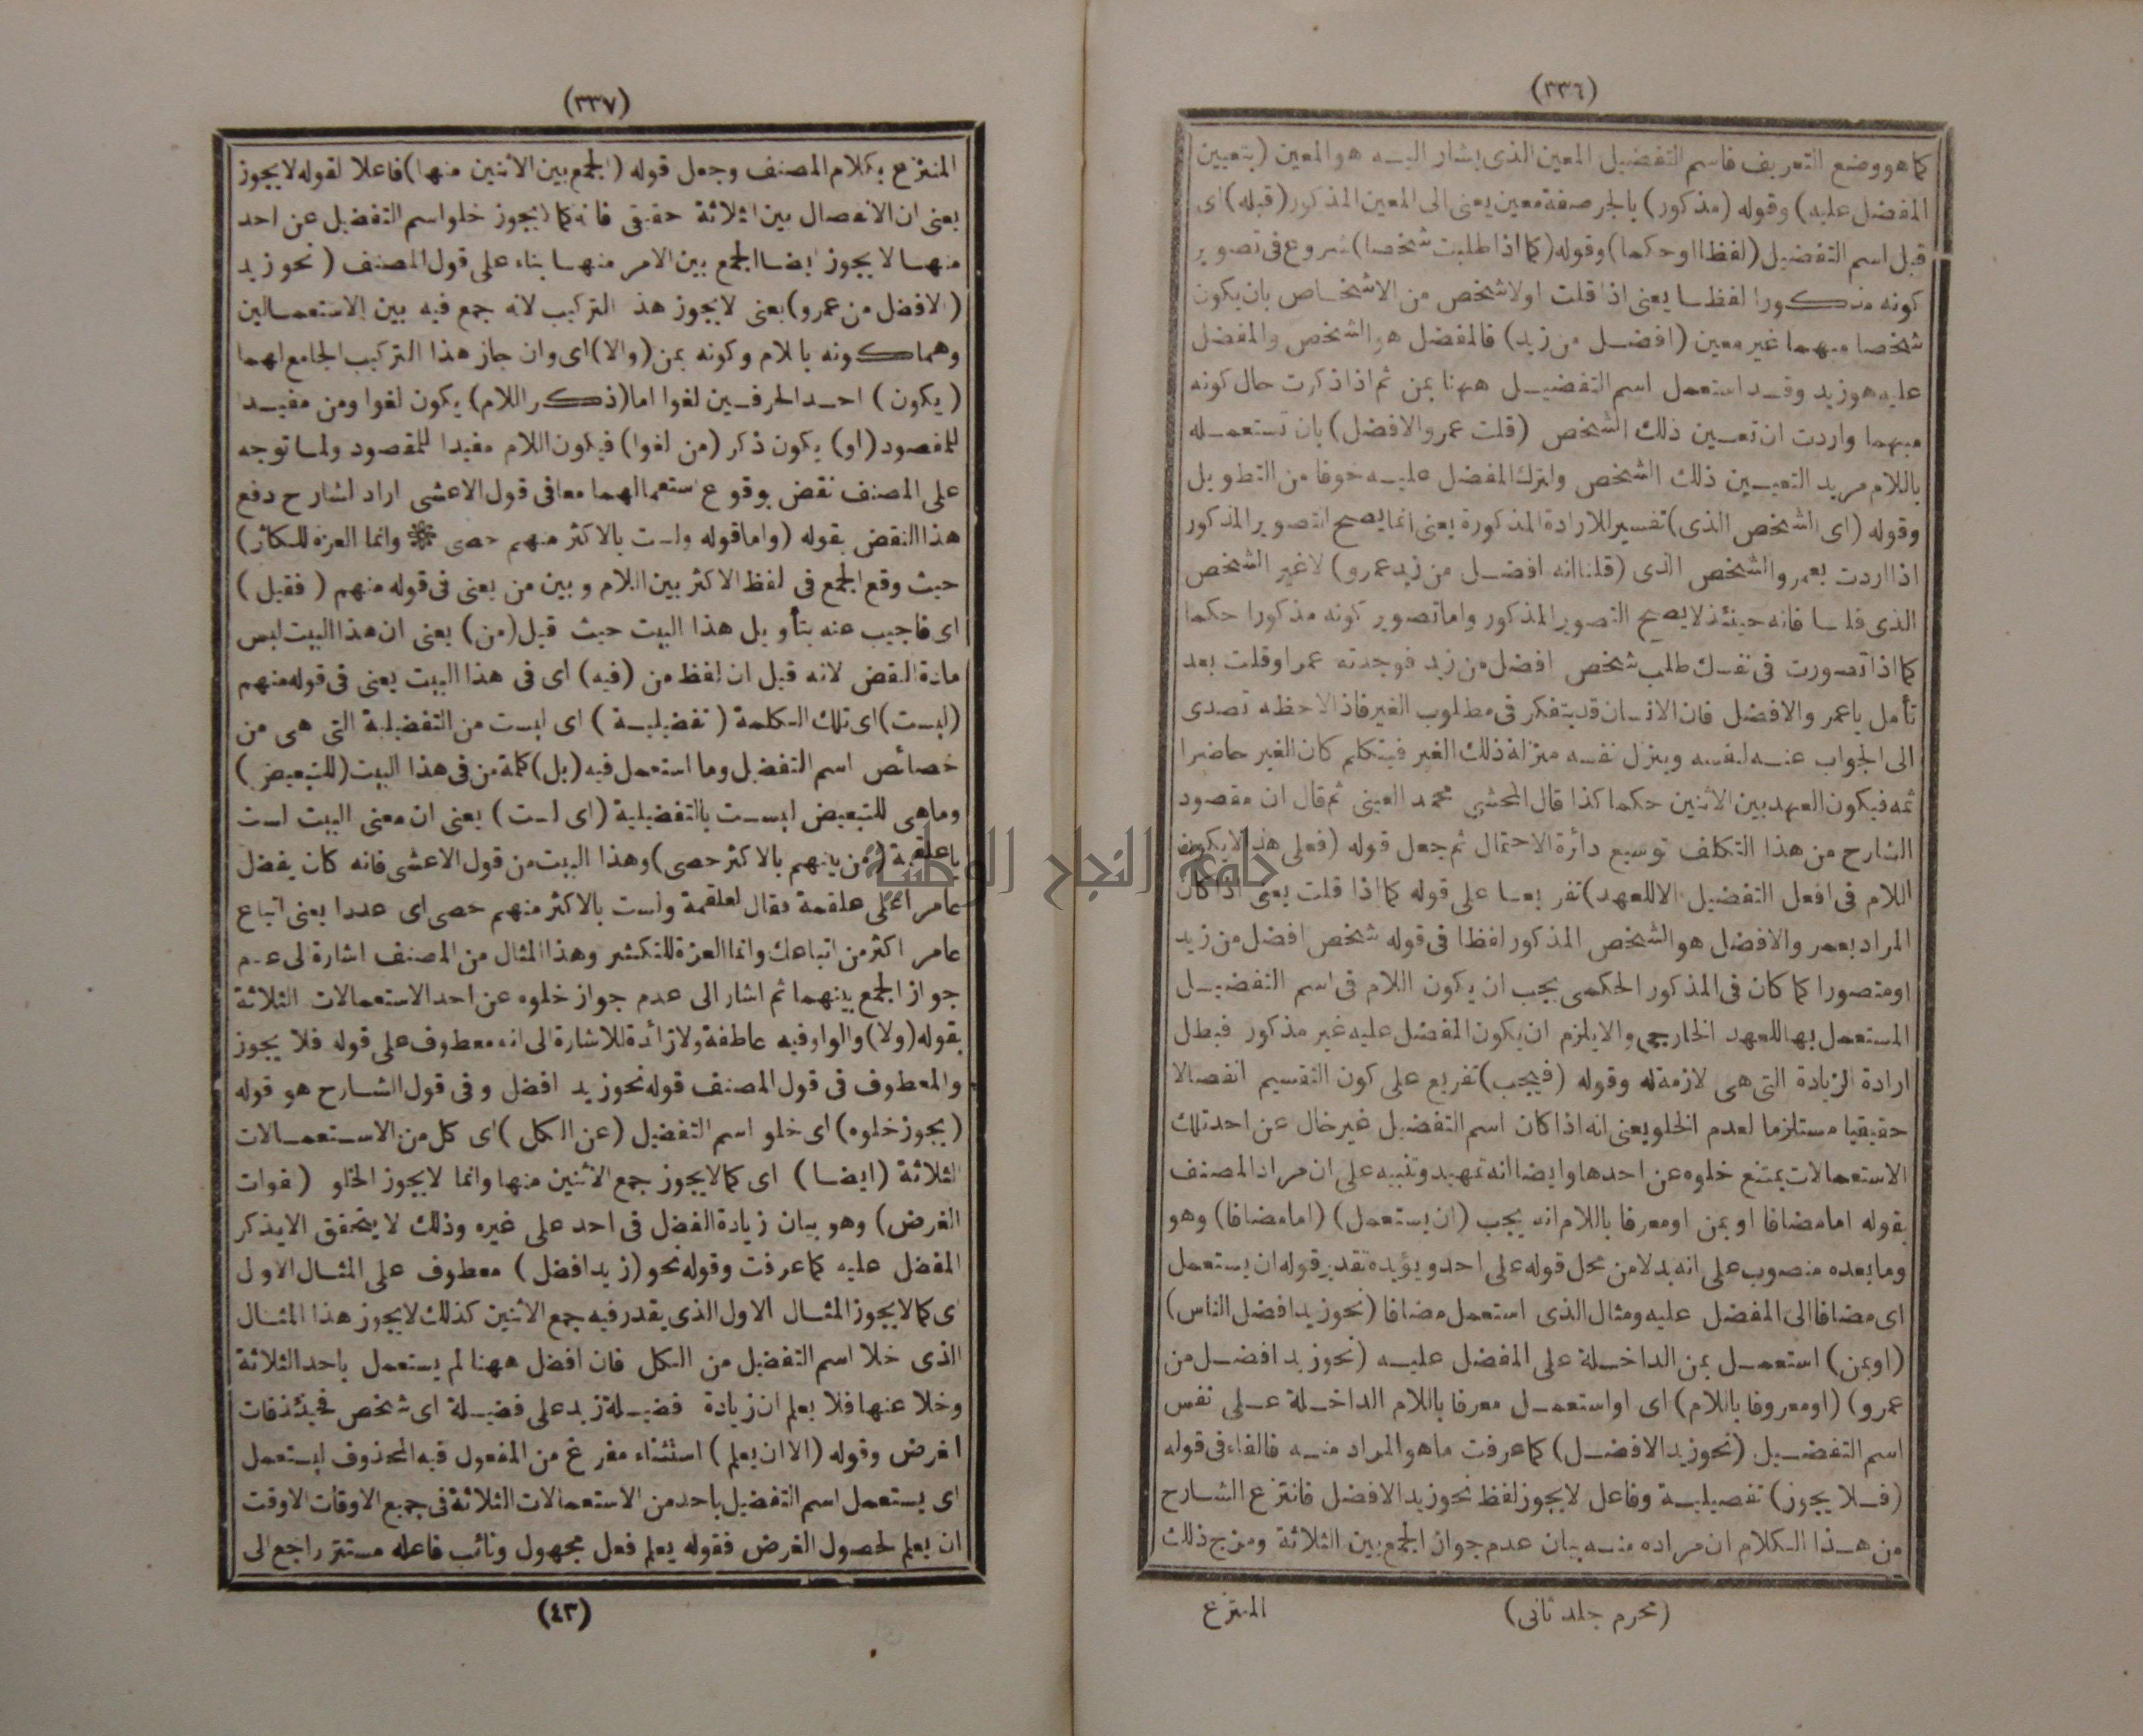 (٣٣٦)
كما هو وضع التعريف فاسم التفضيل المعين الذى يشار اليه هو المعين (بتعيين
المفضل عليه) وقوله (مذكور) بالجر صفة معين يعنى الى المعين المذكور (قبله) اى
قبل اسم التفضيل (لفظا او حكما) وقوله (كما اذا طلبت شخصا) شروع فى تصوير
كونه مذكورا لفظا يعنى اذا قلت اولا شخص من الاشخاص بان يكون
شخصا مبهما غير معين (افضل من زيد) فالمفضل هو الشخص والمفضل
عليه هو زيد وقد استعمل اسم التفضيل ههنا بمن ثم اذا ذكرت حال كونه
مبهما واردت ان تعين ذلك الشخص (قلت عمرو الافضل) بان تستعمله
باللام مريد التعيين ذلك الشخص واترك المفضل عليه خوفا من التطويل
وقوله (اى الشخص الذى) تفسير للارادة المذكورة يعنى انما يصح التصوير المذكور
اذا اردت بعمرو الشخص الذى (قلنا انه افضل من زيد عمرو) لا غير الشخص
الذى قلنا فانه حينئذ لا يصح التصوير المذكور واما تصوير كونه مذكورا حكما
كما اذا تصورت فى نفسك طلب شخص افضل من زيد فوجدته عمرا وقلت بعد
تأمل يا عمر والافضل فان الانسان قد يتفكر فى مطلوب الغير فاذا لاحظه تصدى
الى الجواب عنه لنفسه وينزل نفسه منزلة ذلك الغير فيتكلم كان الغير حاضرا
ثمه فيكون العهد بين الاثنين حكما كذا قال المحشى محمد العينى ثم قال ان مقصود
الشارح من هذا التكلف توسيع دائرة الاحتمال ثم جعل قوله (فعلى هذا لا يكون
اللام فى افعل التفضيل الا للعهد) تفريعا على قوله كما اذا قلت يعنى اذا كان
المراد بعمر والافضل هو الشخص المذكور لفظا فى قوله شخص افضل من زيد
او متصورا كما كان فى المذكور الحكمى يجب ان يكون اللام فى اسم التفضيل
المستعمل بها للعهد الخارجى والا يلزم ان يكون المفضل عليه غير مذكور فبطل
ارادة الزيادة التى هى لازمة له وقوله (فيجب) تفريع على كون التقسيم انفصالا
حقيقيا مستلزما لعدم الخلو يعنى انه اذا كان اسم التفضيل غير خال عن احد تلك
الاستعمالات يمتنع خلوه عن احدها وايضا انه تمهيد وتنبيه على ان مراد المصنف
بقوله اما مضافا او بمن او معرفا باللام انه يجب (ان يستعمل) (اما مضافا) وهو
وما بعده منصوب على انه بدلا من محل قوله على احد ويؤيده تقدير قوله ان يستعمل
اى مضافا الى المفضل عليه ومثال الذى استعمل مضافا (نحو زيد افضل الناس)
(او بمن) استعمل بمن الداخلة على المفضل عليه (نحو زيد افضل من
عمرو) (او معروفا باللام) اى او استعمل معرفا باللام الداخلة على نفس
اسم التفضيل (نحو زيد الافضل) كما عرفت ما هو المراد منه فالفاء فى قوله
(فلا يجوز) تفصيلية وفاعل لا يجوز لفظ نحو زيد الافضل فانتزع الشارح
من هذا الكلام ان مراده منه بيان عدم جواز الجمع بين الثلاثة ومزج ذلك
(محرم جلد ثانى)
المنتزع
(٣٣٧)
المنتزع بكلام المصنف وجعل قوله (الجمع بين الاثنين منها) فاعلا لقوله لا يجوز
يعنى ان الانفصال بين الثلاثة حقيقى فانه كما لا يجوز خلو اسم التفضيل عن احد
منها لا يجوز ايضا الجمع بين الامر منها بناء على قول المصنف (نحو زيد
(الافضل من عمرو) يعنى لا يجوز هذ التركيب لانه جمع فيه بين الاستعمالين
وهما كونه باللام وكونه بمن (والا) اى وان جاز هذا التركيب الجامع لهما
(يكون) احد الحرفين لغوا اما (ذكر اللام) يكون لغوا ومن مفيدا
للمقصود (او) يكون ذكر (من لغوا) فيكون اللام مفيدا للمقصود ولما توجه
على المصنف نقض بوقوع استعمالهما معا فى قول الاعشى اراد الشارح دفع
هذا النقض بقوله (واما قوله ولست بالاكثر منهم حصى ❋ وانما العزة للكاثر)
حيث وقع الجمع فى لفظ الاكثر بين اللام وبين من يعنى فى قوله منهم (فقيل)
اى فاجيب عنه بتأويل هذا البيت حيث قيل (من) يعنى ان هذا البيت ليس
مادة النقض لانه قيل ان لفظ من (فيه) اى فى هذا البيت يعنى فى قوله منهم
(ليست) اى تلك الكلمة (تفضيلية) اى ليست من التفضيلية التى هى من
خصائص اسم التفضيل وما استعمل فيه (بل) كلمة من فى هذا البيت (للتبعيض)
وما هى للتبعيض ليست بالتفضيلية (اى لست) يعنى ان معنى البيت لست
يا علقمة (من بينهم بالاكثر حصى) وهذا البيت من قول الاعشى فانه كان يفضل
عامرا على علقمة فقال لعلقمة ولست بالاكثر منهم حصى اى عددا يعنى اتباع
عامر اكثر من اتباعك وانما العزة للتكثير وهذا المثال من المصنف اشارة الى عدم
جواز الجمع بينهما ثم اشار الى عدم جواز خلوه عن احد الاستعمالات الثلاثة
بقوله (ولا) والواو فيه عاطفة ولا زائدة للاشارة الى انه معطوف على قوله فلا يجوز
والمعطوف فى قول المصنف قوله نحو زيد افضل وفى قول الشارح هو قوله
(يجوز خلوه) اى خلو اسم التفضيل (عن الكل) اى كل من الاستعمالات
الثلاثة (ايضا) اى كما لا يجوز جمع الاثنين منها وانما لا يجوز الخلو (لفوات
الغرض) وهو بيان زيادة الفضل فى احد على غيره وذلك لا يتحقق الا بذكر
المفضل عليه كما عرفت وقوله نحو (زيد افضل) معطوف على المثال الاول
اى كما لا يجوز المثال الاول الذى يقدر فيه جمع الاثنين كذلك لا يجوز هذا المثال
الذى خلا اسم التفضيل من الكل فان افضل ههنا لم يستعمل باحد الثلاثة
وخلا عنها فلا يعلم ان زيادة فضيلة زيد على فضيلة اى شخص فحينئذ فات
الغرض وقوله (الا ان يعلم) استثناء مفرغ من المفعول فيه المحذوف ليستعمل
اى يستعمل اسم التفضيل باحد من الاستعمالات الثلاثة فى جميع الاوقات الا وقت
ان يعلم لحصول الغرض فقوله يعلم فعل مجهول ونائب فاعله مستتر راجع الى
(٤٣)
جامعة النجاح الوطنية